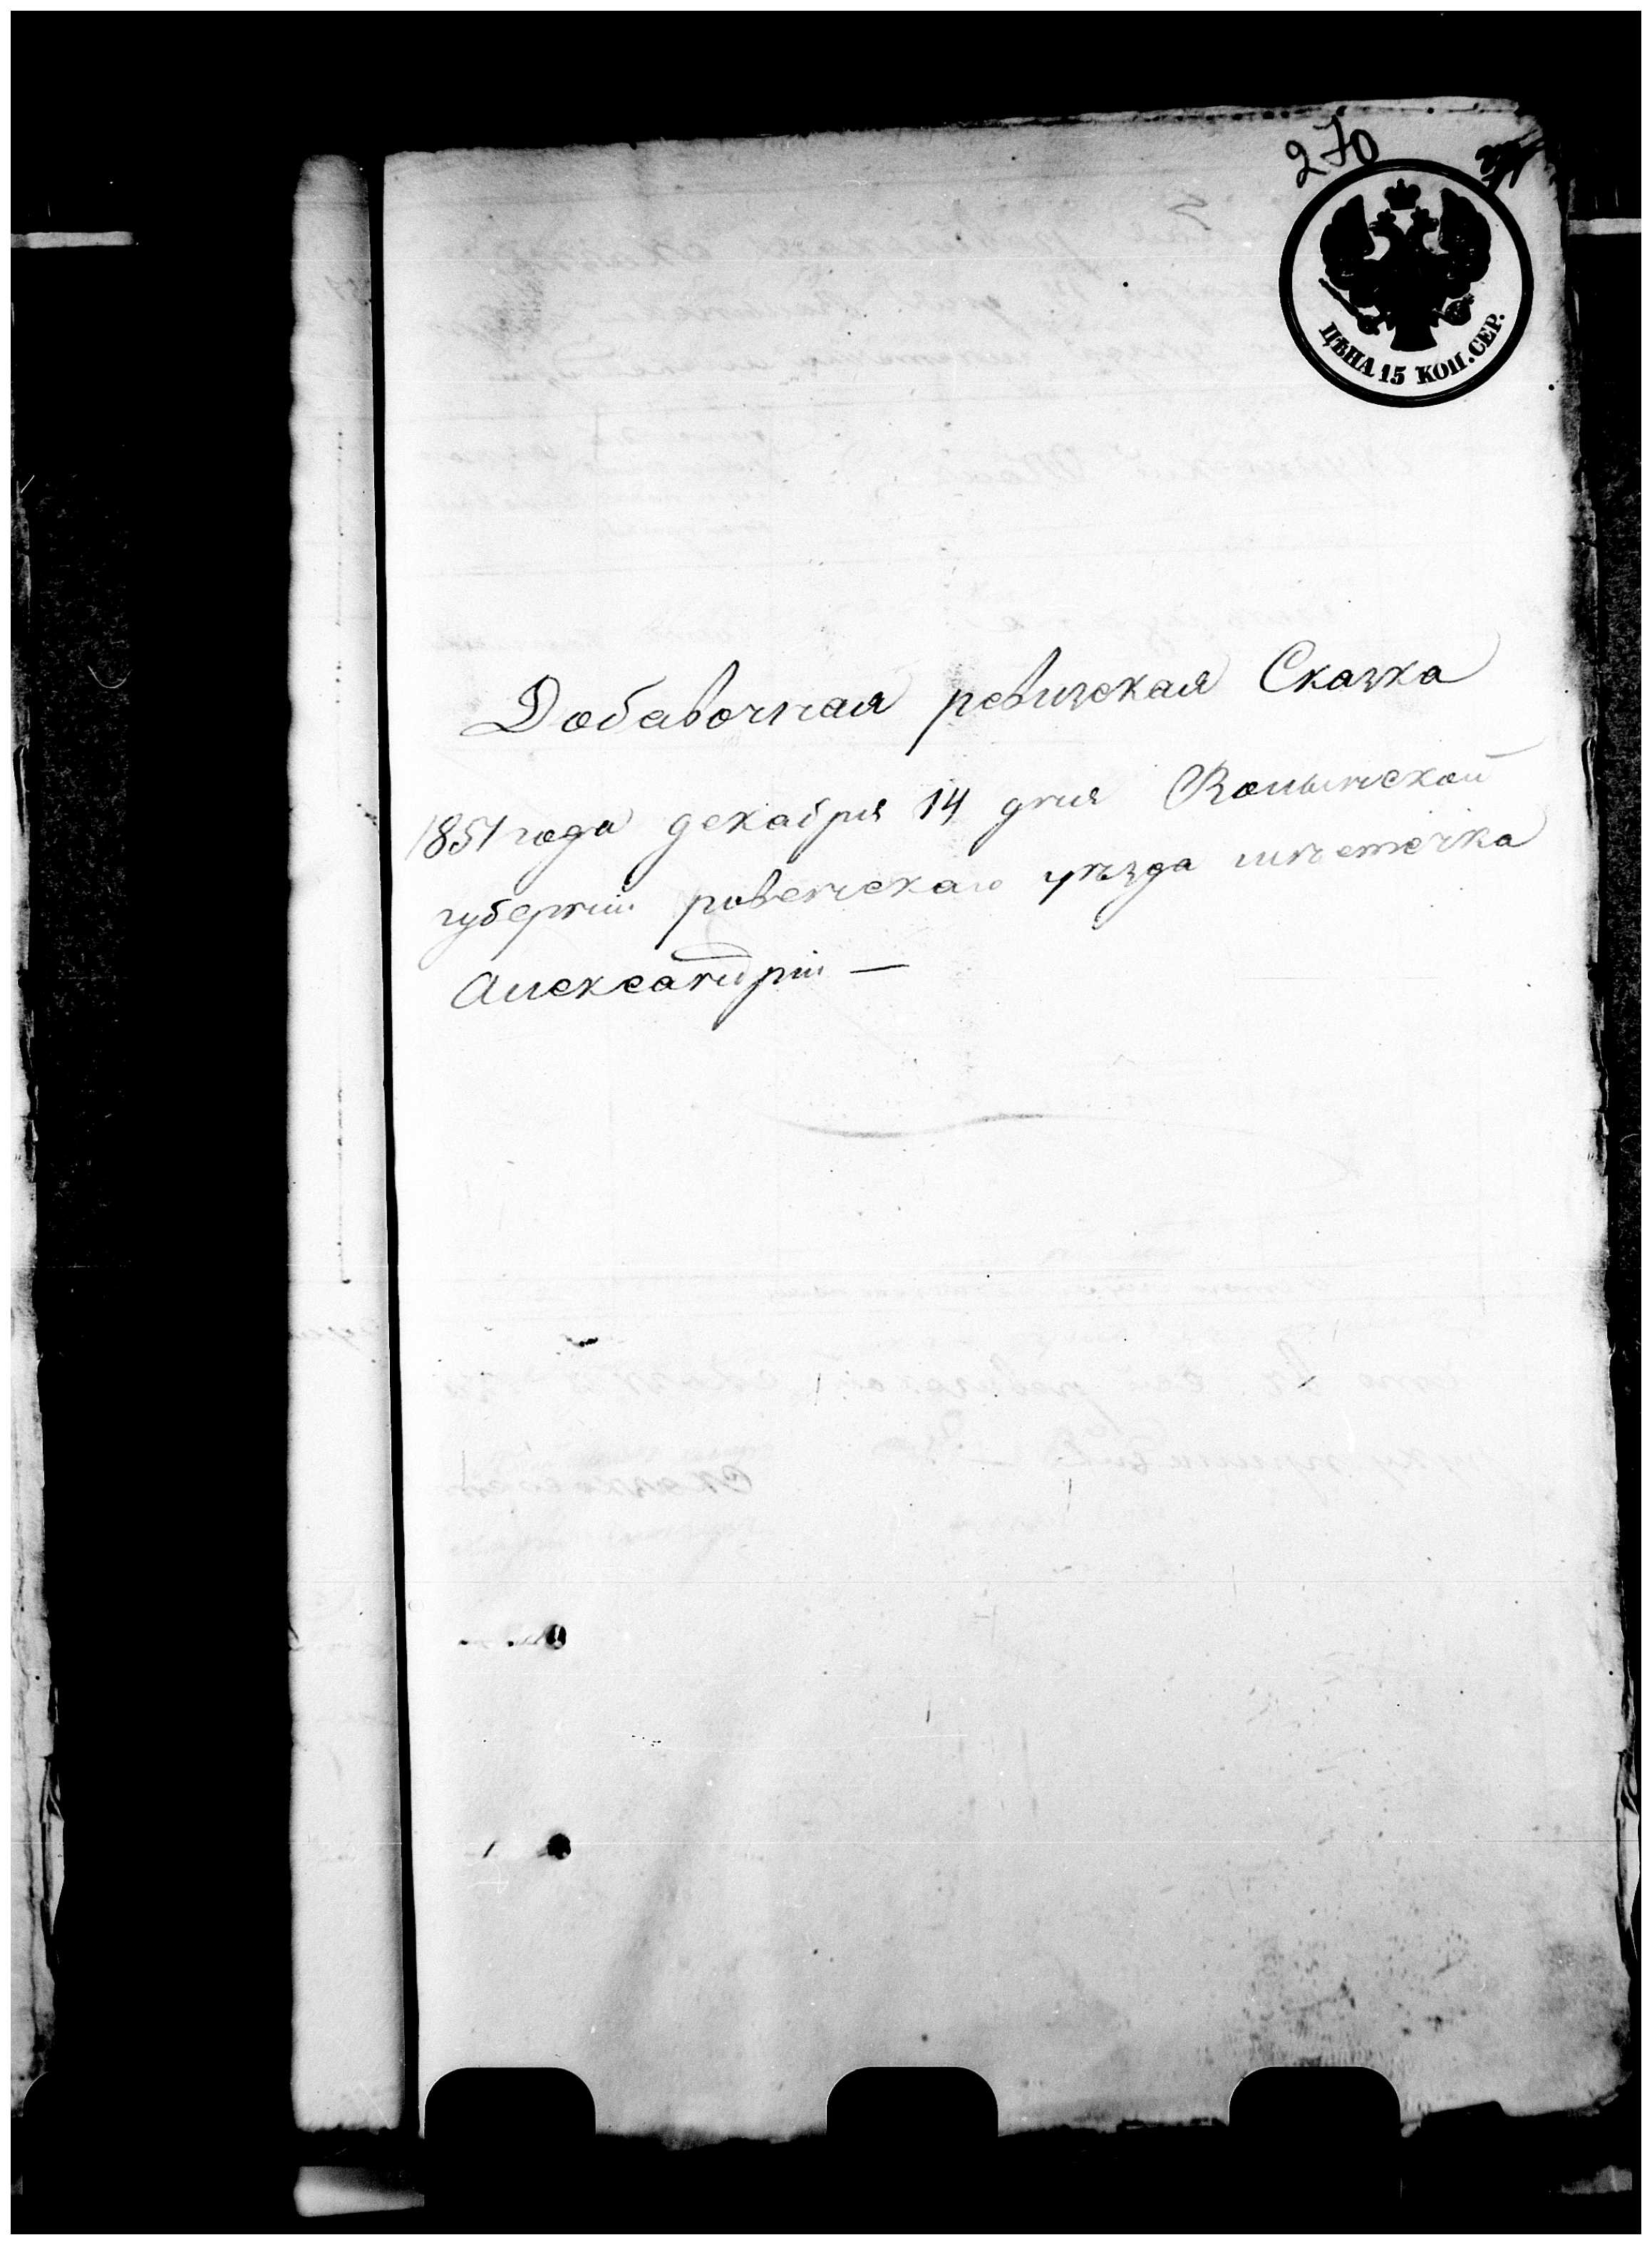 270
ЦѢНА 15 КОП. СЕР.
Добавочная ревизская Сказка
1851 года декабря 14 дня Волынской
губернiи ровенскаго уѣзда мѣстечка
Александрiи —